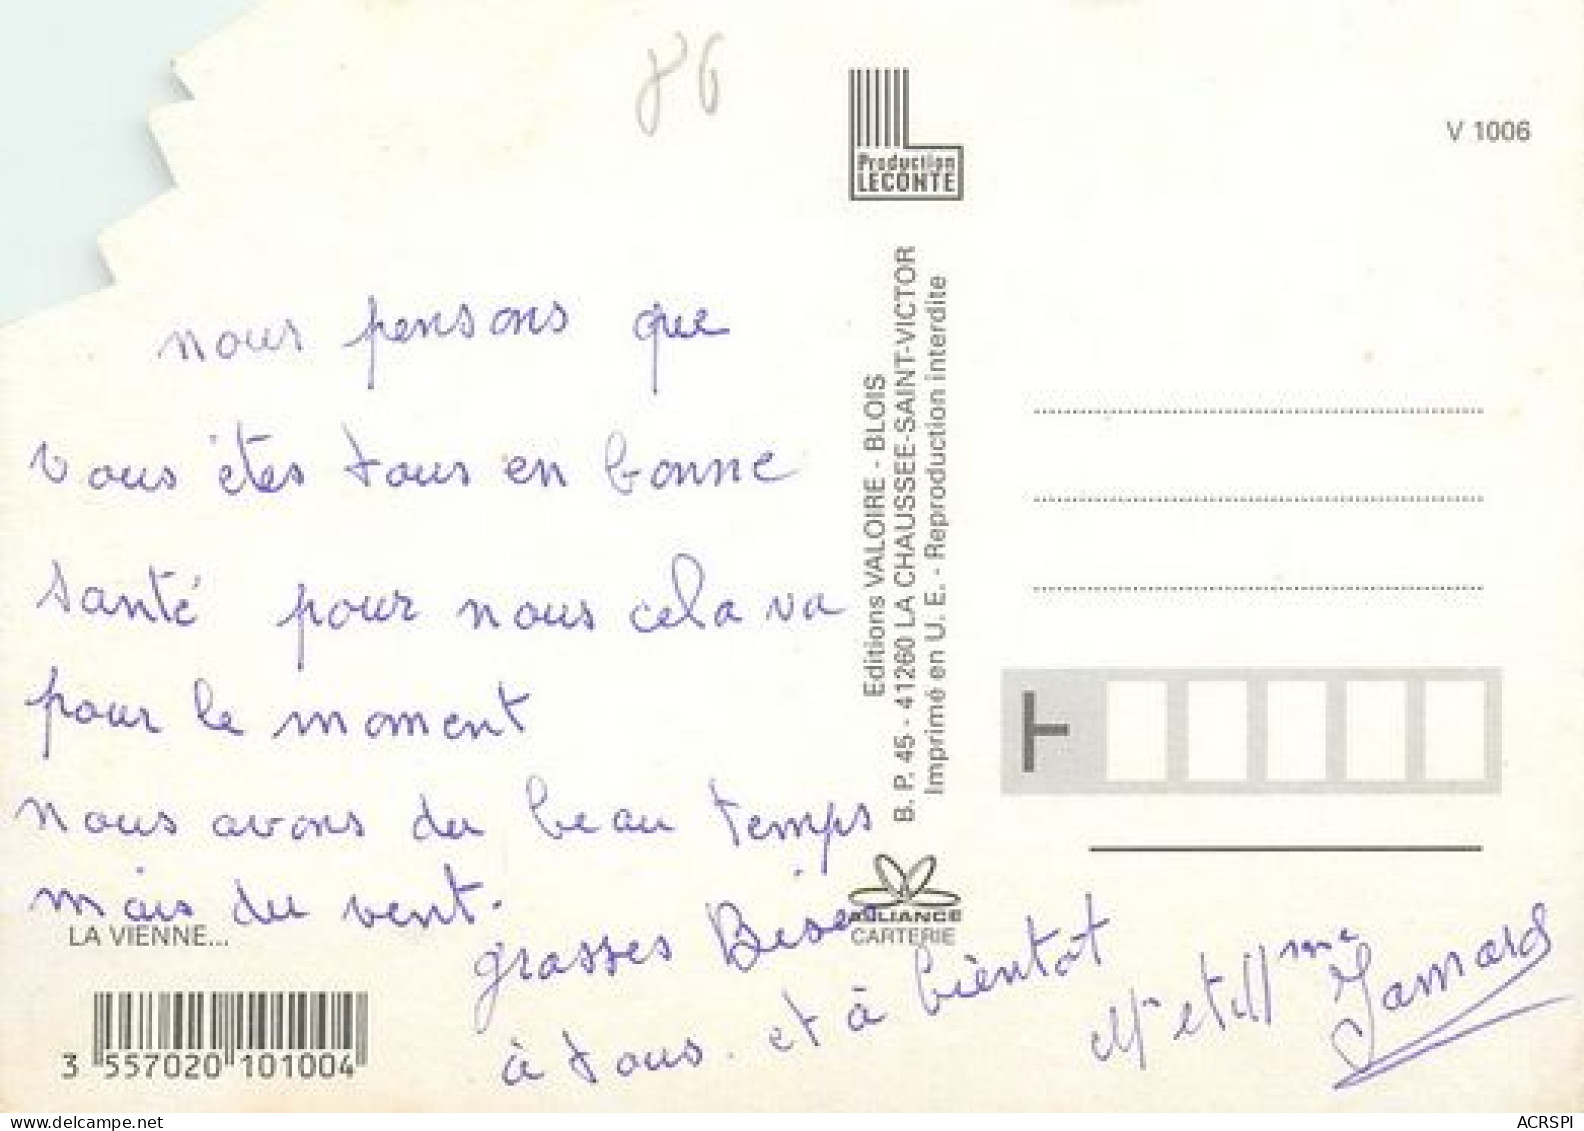 86
Production
LECONTE
V 1006
nous pensons que
vous êtes tous en bonne
santé pour nous cela va
pour le moment
nous avons du beau temps
mais du vent.
grosses Bises
à tous. et à bientôt
Mr et Mme
LA VIENNE...
3 557020 101004
Editions VALOIRE - BLOIS
B. P. 45 - 41260 LA CHAUSSEE-SAINT-VICTOR
Imprimé en U. E. - Reproduction interdite
ALLIANCE
CARTERIE
delcampe.net
ACRSPI